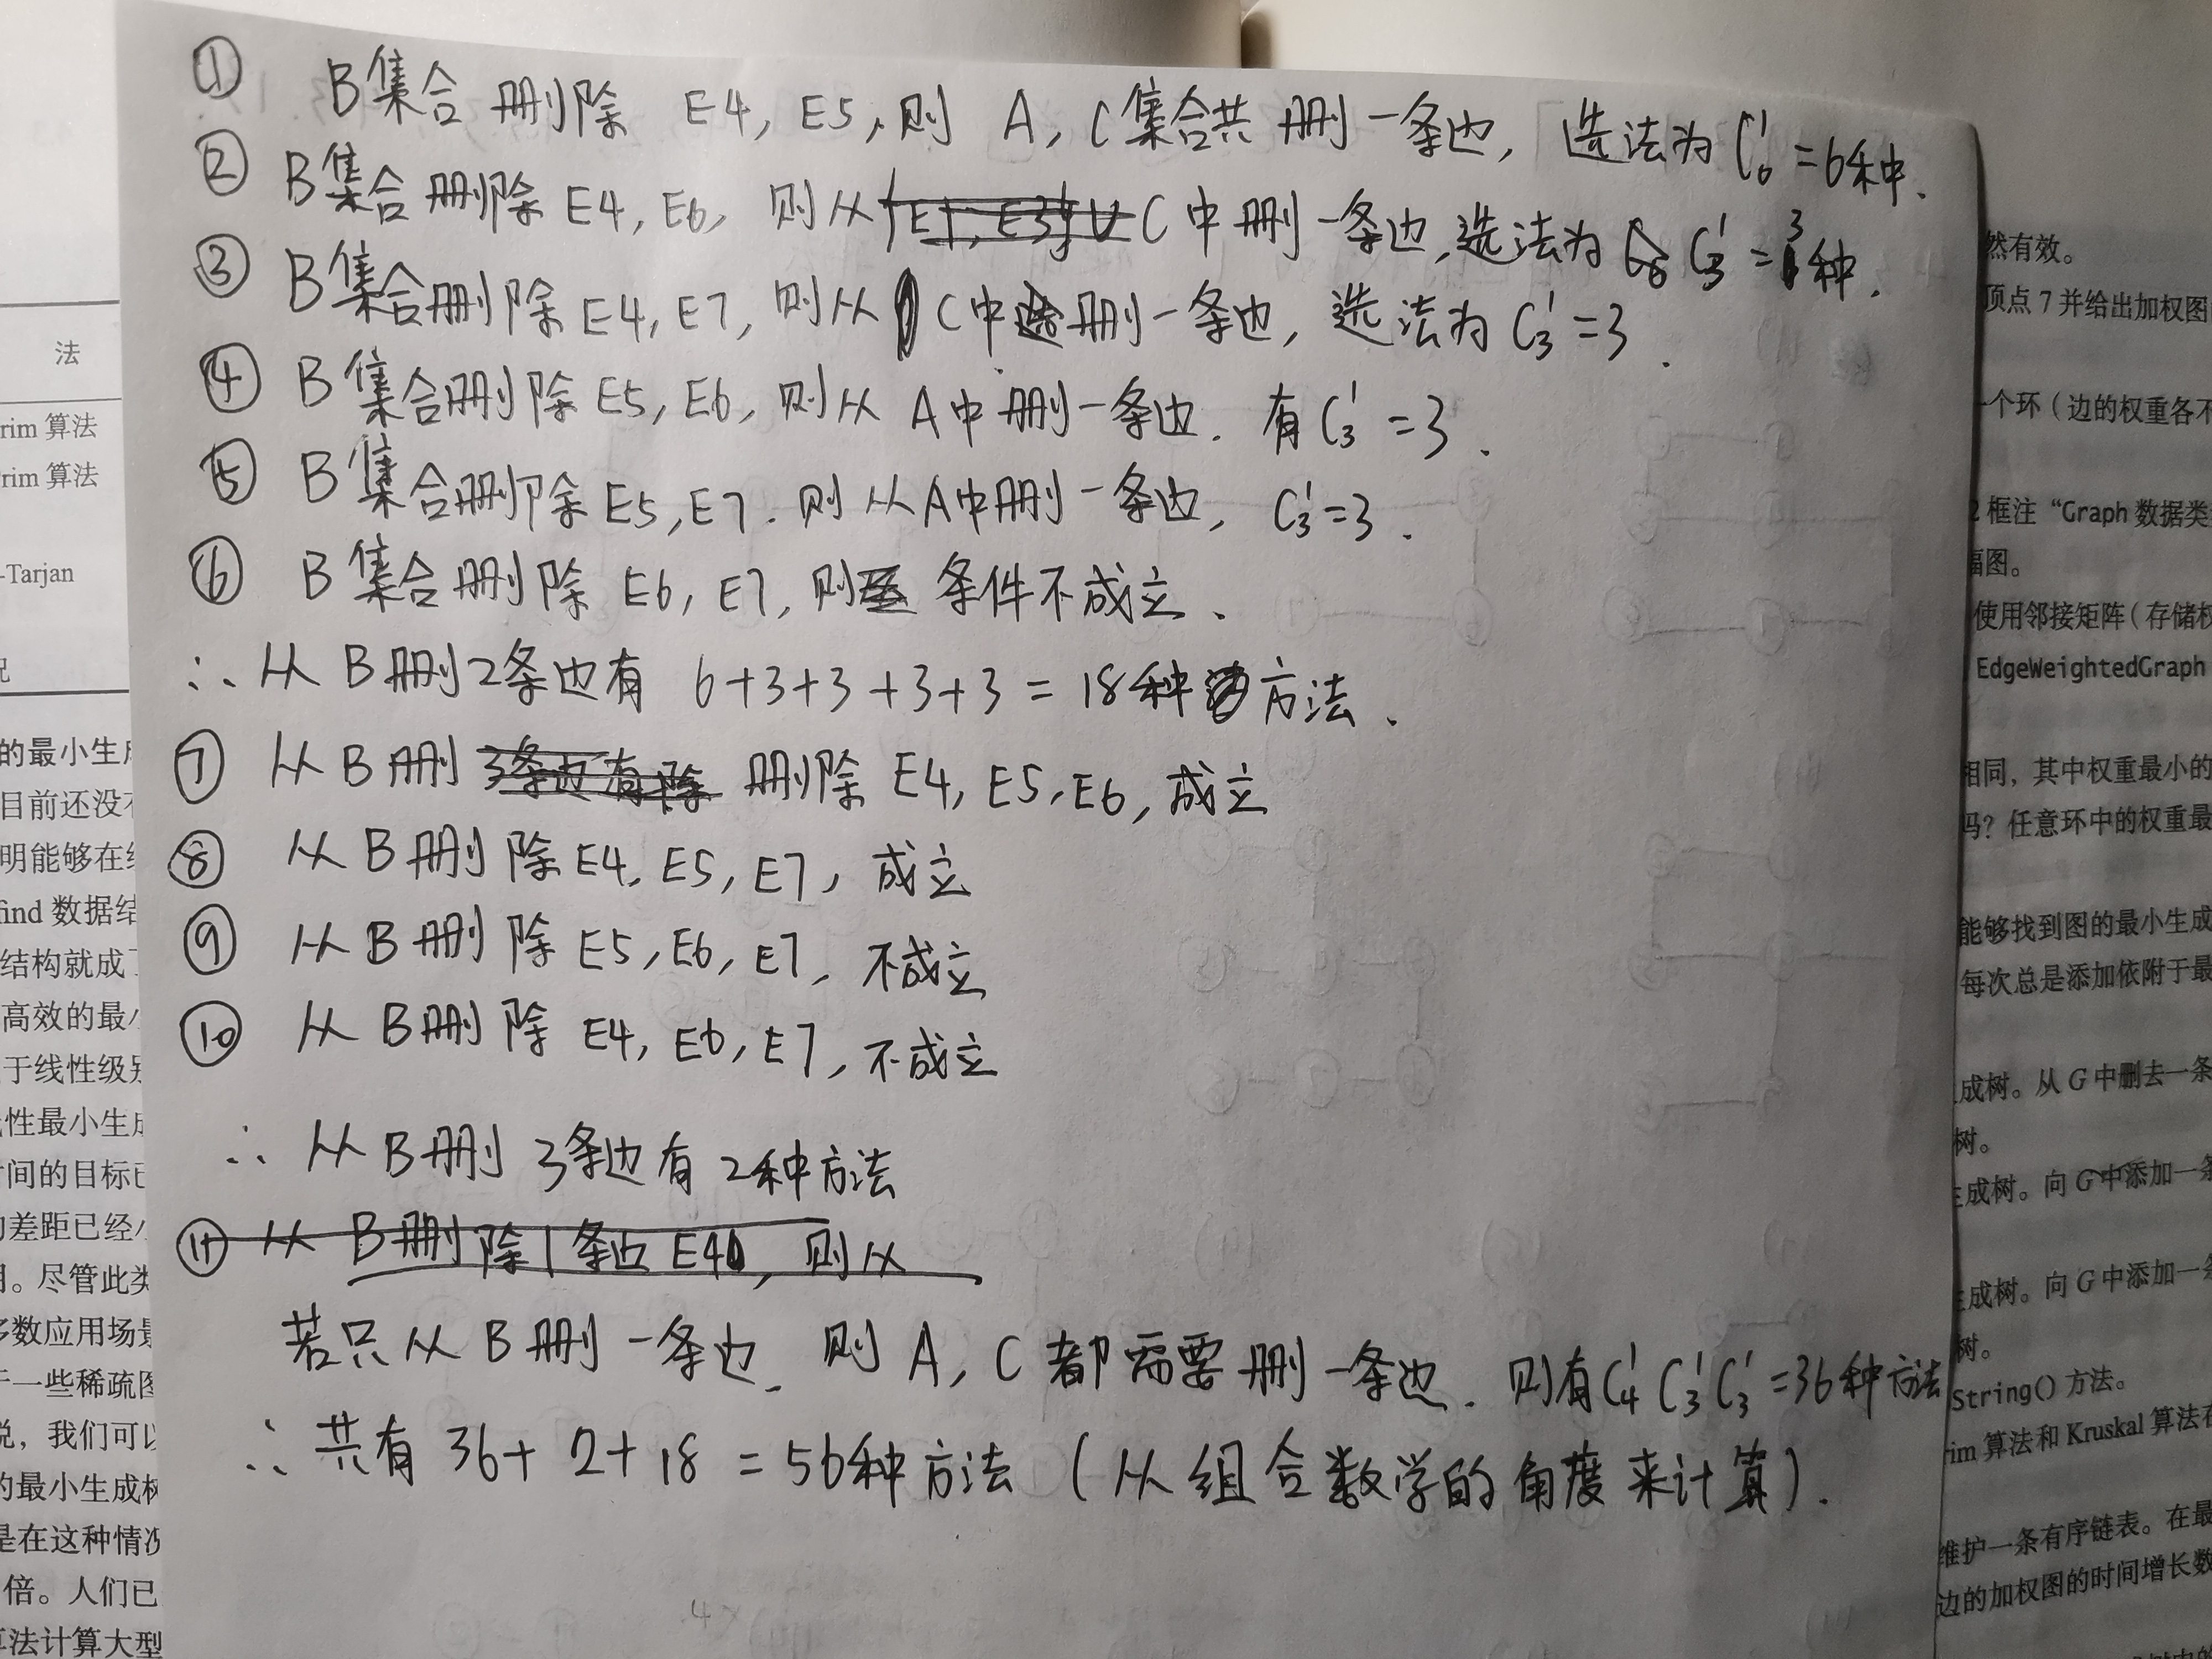 ① B集合 删除 E4, E5, 则 A, C集合共 删一条边, 选法为 C₆¹ = 6种.
② B集合删除 E4, E6, 则从 C 中删一条边, 选法为 C₃¹ = 3种.
③ B集合删除 E4, E7, 则从 C中删一条边, 选法为 C₃¹ = 3.
④ B集合删除 E5, E6, 则从 A中删一条边. 有 C₃¹ = 3.
⑤ B集合删除 E5, E7. 则从A中删一条边, C₃¹ = 3.
⑥ B集合删除 E6, E7, 则 条件不成立.
∴ 从 B 删2条边有 6+3+3+3+3 = 18种方法.
⑦ 从 B 删 3条边有 删除 E4, E5, E6, 成立
⑧ 从 B 删除 E4, E5, E7, 成立
⑨ 从 B 删除 E5, E6, E7, 不成立
⑩ 从 B 删除 E4, E6, E7, 不成立
∴ 从 B 删 3条边有 2种方法
⑪ 从 B 删除1条边 E4, 则从
若只从 B 删一条边, 则 A, C 都需要删一条边. 则有 C₄¹ C₃¹ C₃¹ = 36种方法
∴ 共有 36 + 2 + 18 = 56种方法 (从组合数学的角度来计算).
法
rim 算法
rim 算法
-Tarjan
的最小生成
目前还没有
明能够在线
find 数据结
结构就成了
高效的最小
于线性级别
性最小生成
时间的目标已
的差距已经小
用。尽管此类
多数应用场景
于一些稀疏图
说，我们可以
的最小生成树
是在这种情况
倍。人们已
算法计算大型
然有效。
顶点 7 并给出加权图
一个环（边的权重各不
框注“Graph 数据类
幅图。
使用邻接矩阵（存储权
EdgeWeightedGraph
相同，其中权重最小的
吗？任意环中的权重最
能够找到图的最小生成
每次总是添加依附于最
成树。从 G 中删去一条
树。
生成树。向 G 中添加一条
生成树。向 G 中添加一条
树。
String() 方法。
rim 算法和 Kruskal 算法在
维护一条有序链表。在最
边的加权图的时间增长数